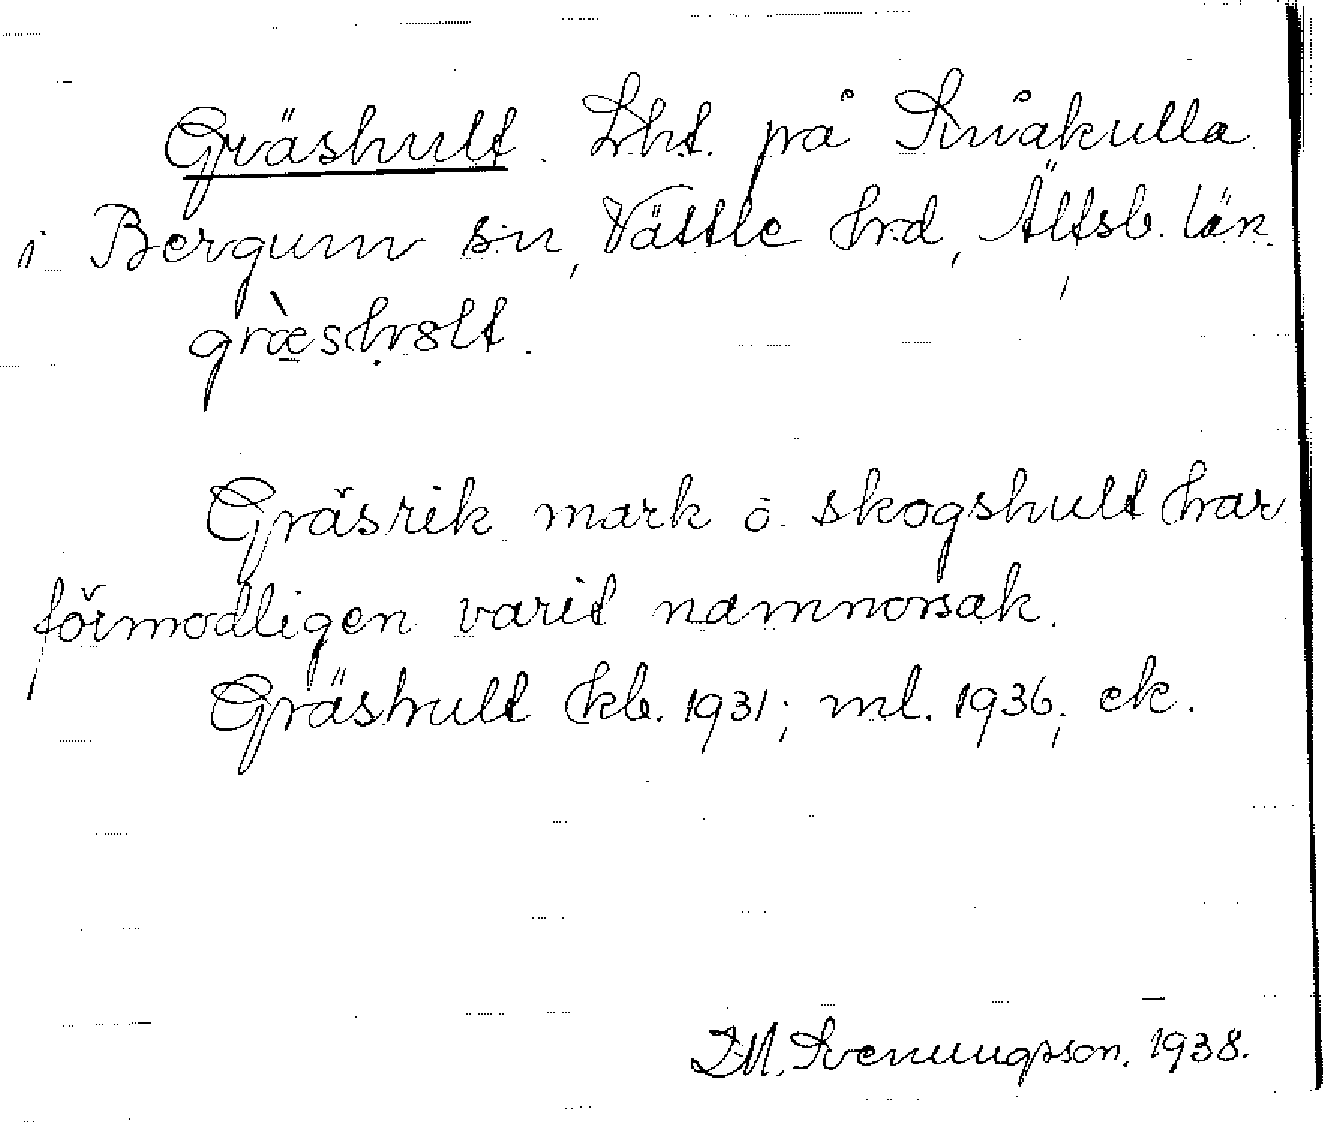 Gräshult. Lht. på Knåkulla
i Bergum sn, Vättle hrd, Älfsb. län.
græ̀sḥult.
Gräsrik mark o. skogshult har
förmodligen varit namnorsak.
Gräshult kb. 1931; ml. 1936; ek.
I.M. Svenungsson. 1938.